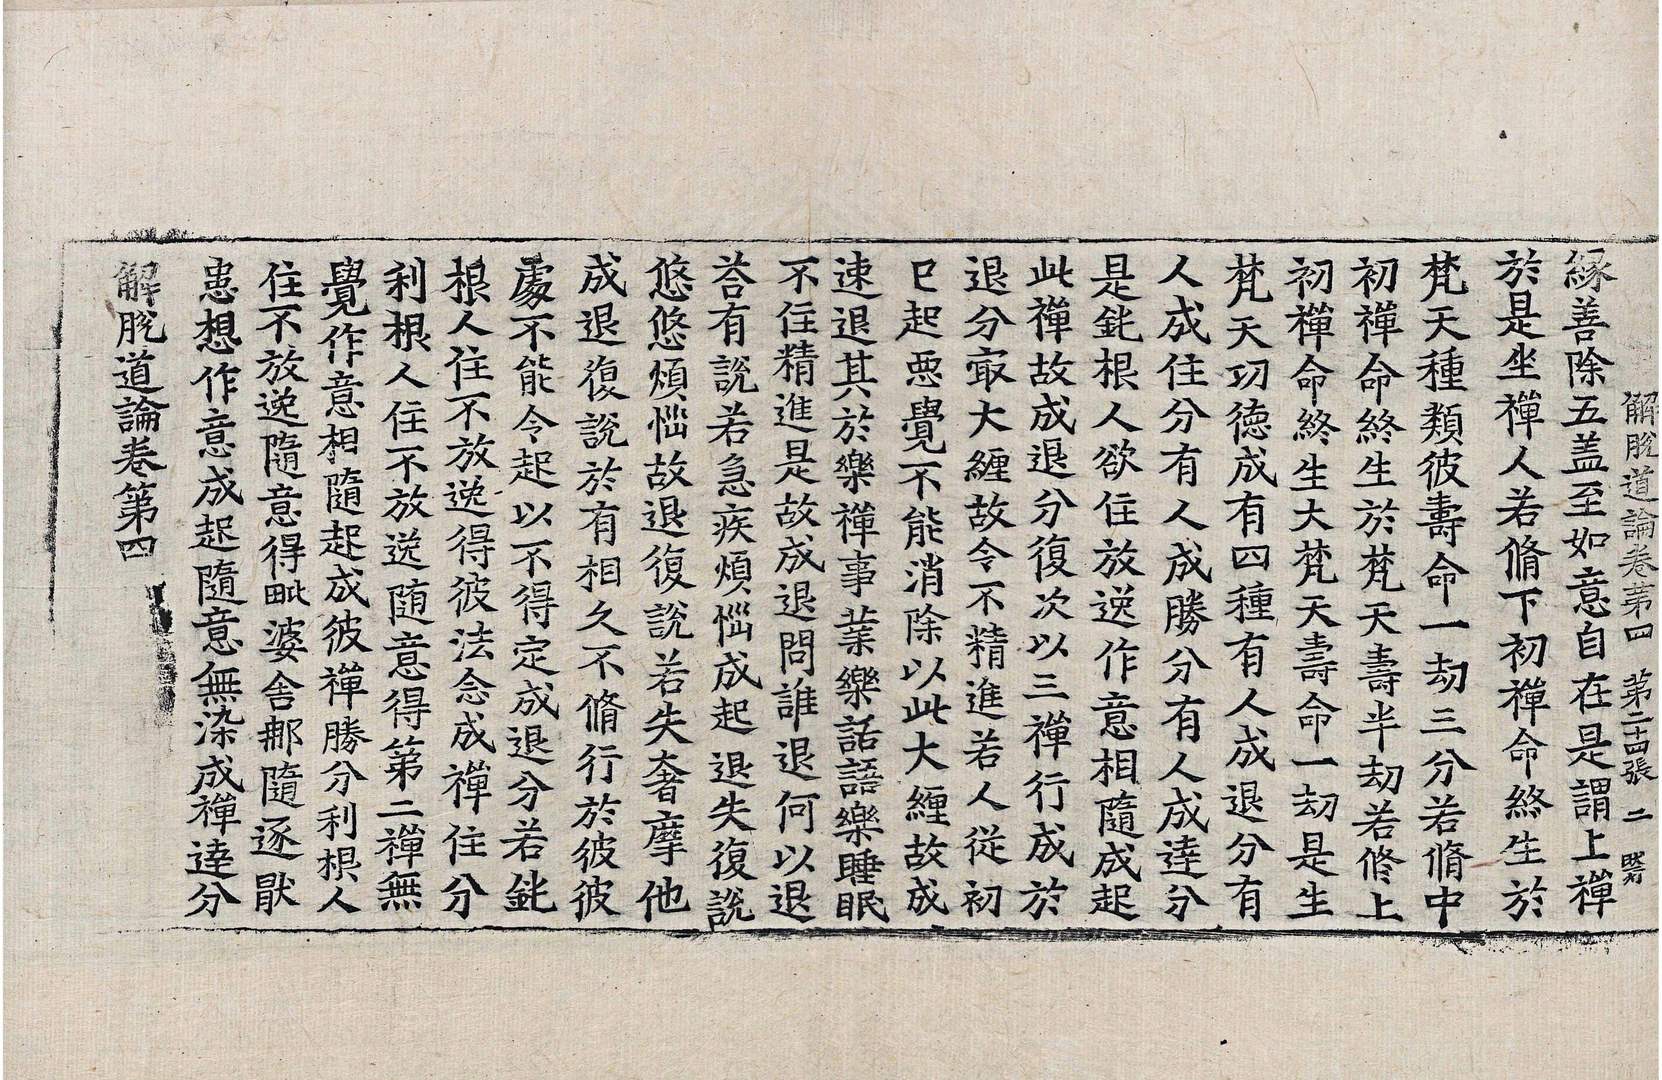 解脫道論卷第四　第二十四張　二　嵒
緣善除五盖至如意自在是謂上禪
於是坐禪人若脩下初禪命終生於
梵天種類彼壽命一劫三分若脩中
初禪命終生於梵天壽半劫若修上
初禪命終生大梵天壽命一劫是生
梵天功德成有四種有人成退分有
人成住分有人成勝分有人成達分
是鈍根人欲住放逸作意相隨成起
此禪故成退分復次以三禪行成於
退分㝡大纏故令不精進若人從初
巳起惡覺不能消除以此大纏故成
速退其於樂禪事業樂話語樂睡眠
不住精進是故成退問誰退何以退
荅有說若急疾煩惱成起退失復說
悠悠煩惱故退復說若失奢摩他
成退復說於有相久不脩行於彼彼
處不能令起以不得定成退分若鈍
根人住不放逸得彼法念成禪住分
利根人住不放逸隨意得第二禪無
覺作意相隨起成彼禪勝分利根人
住不放逸隨意得毗婆舍那隨逐猒
患想作意成起隨意無染成禪達分
解脫道論卷第四